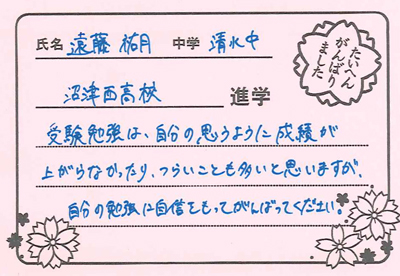 氏名 遠藤 祐月 中学 清水中
たいへん
がんばり
ました
沼津西高校 進学
受験勉強は、自分の思うように成績が
上がらなかったり、つらいことも多いと思いますが、
自分の勉強に自信をもってがんばってください。